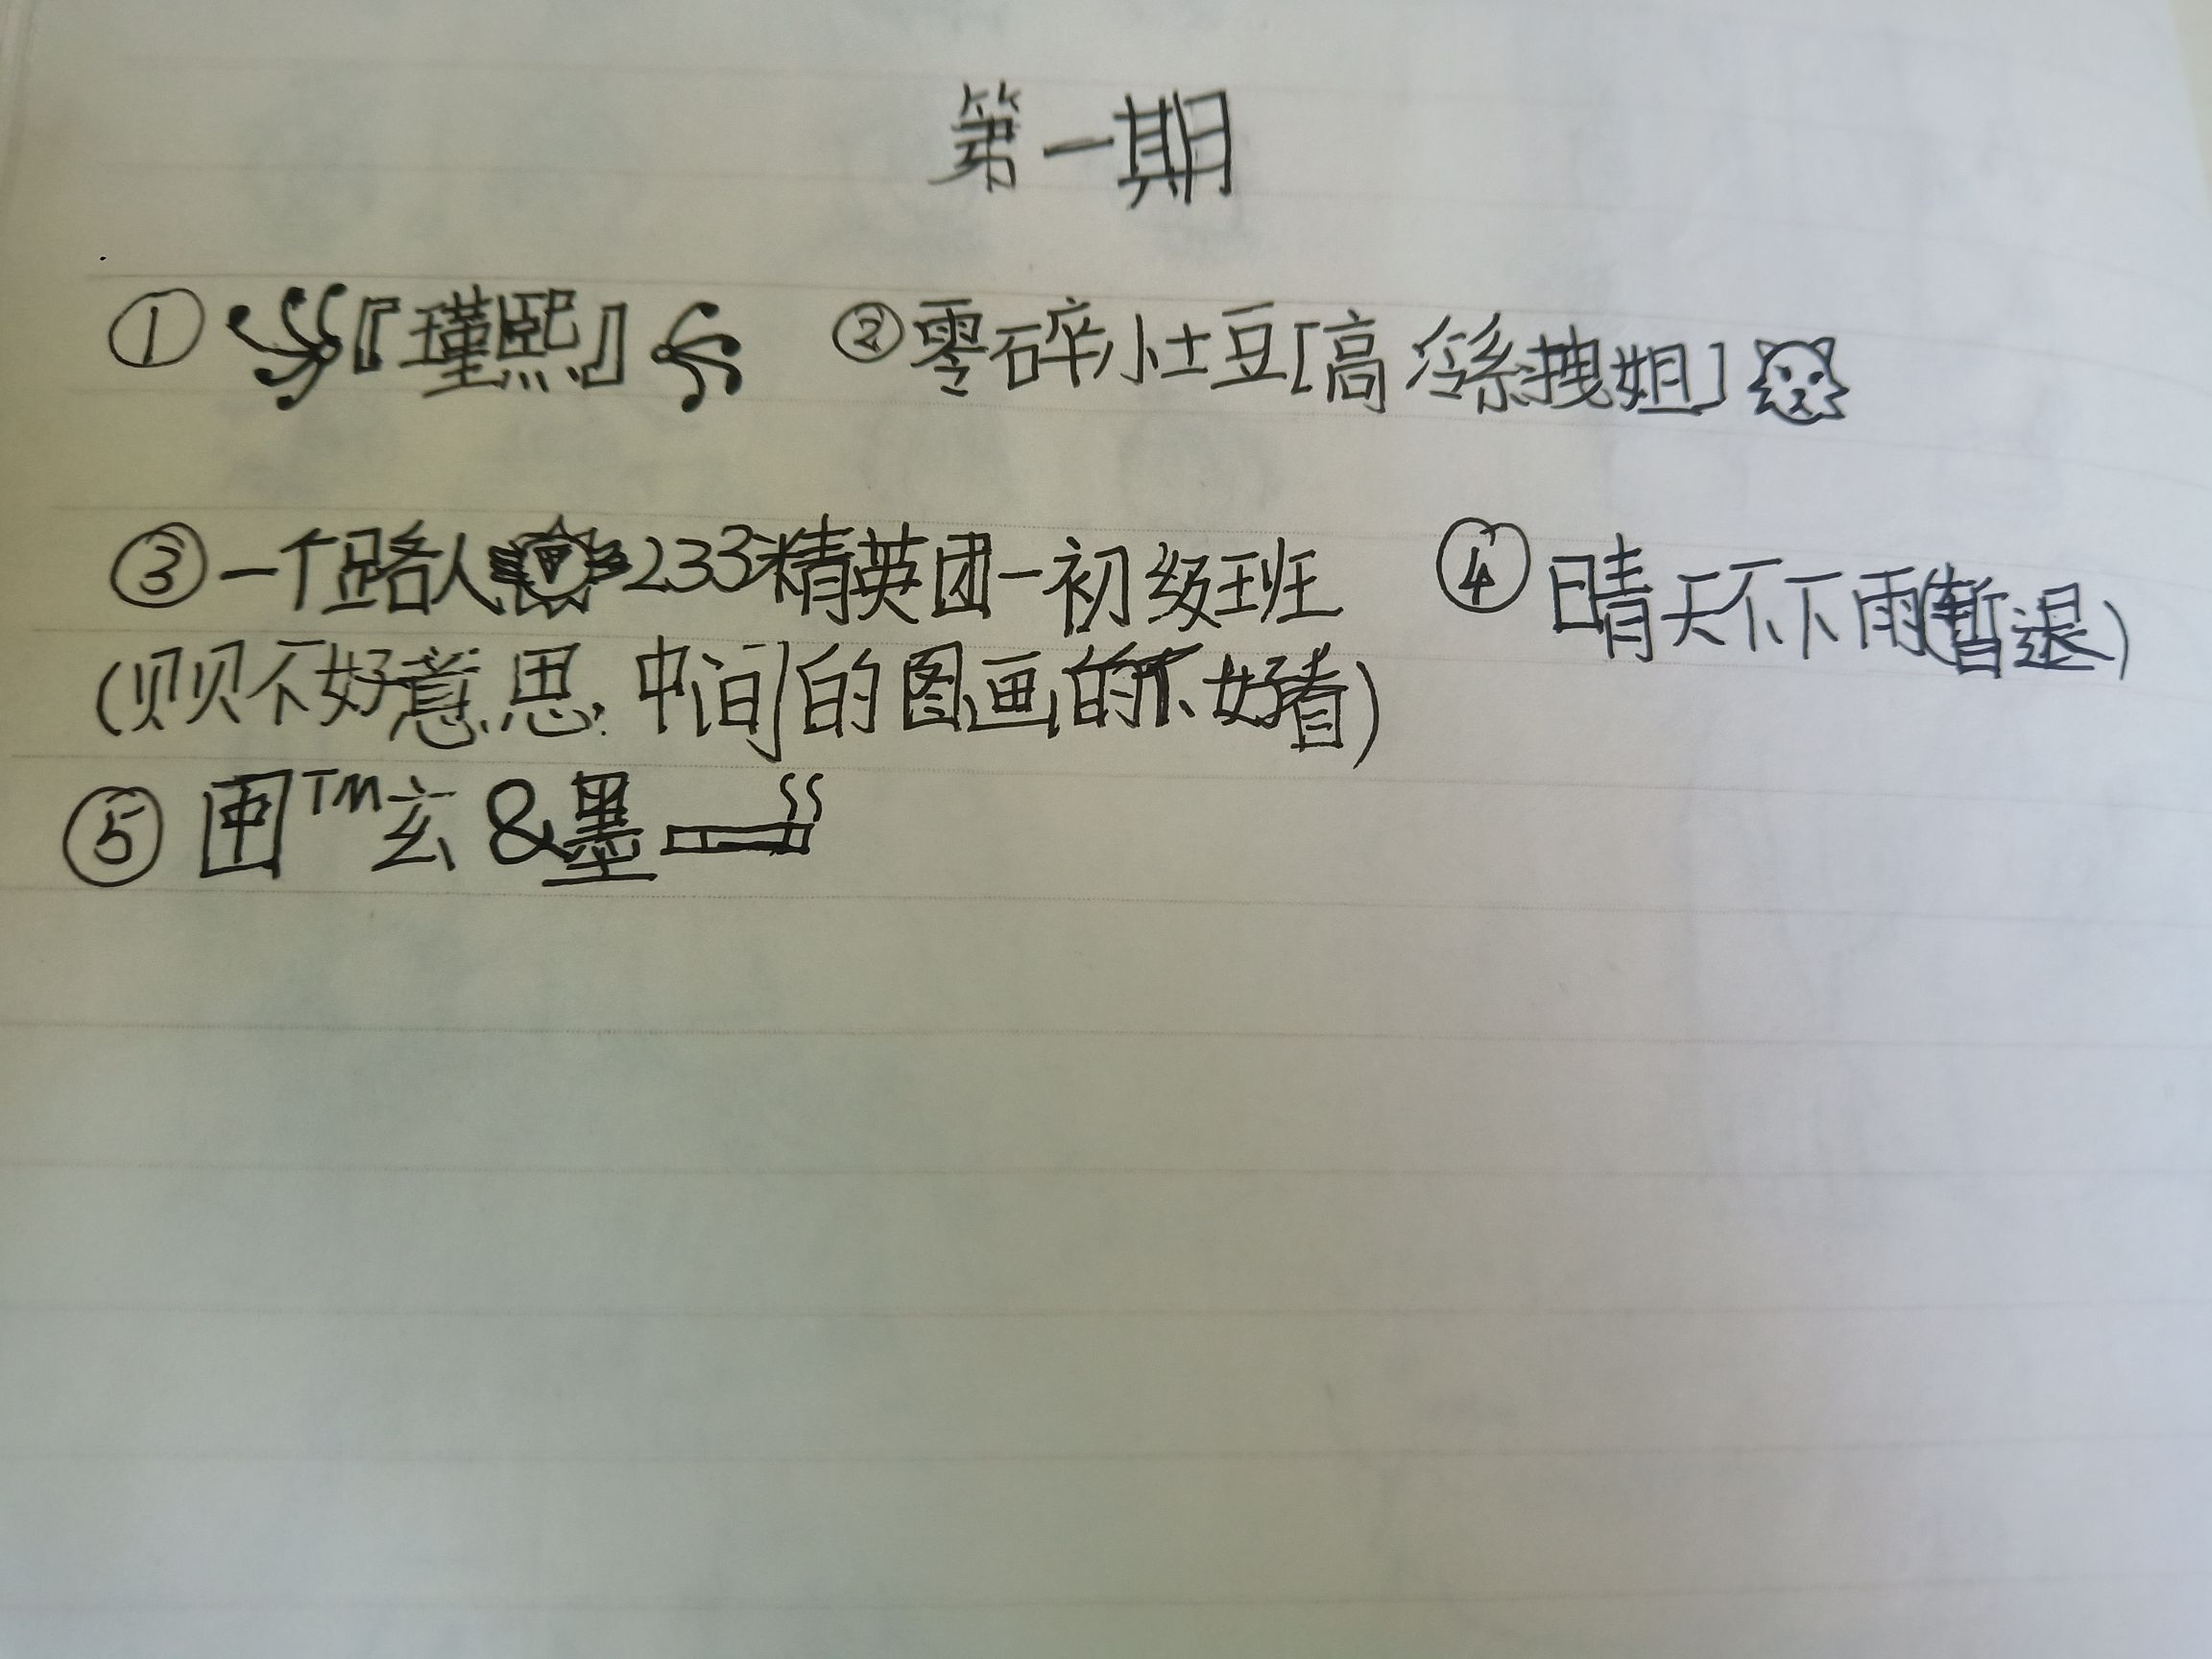 第一期
① 『瑾熙』 ② 零碎小土豆[高冷系拽姐]
③ 一个路人 233精英团一初级班 ④ 晴天不下雨(暂退)
(贝贝不好意思,中间的图画的不好看)
⑤ TM玄&墨